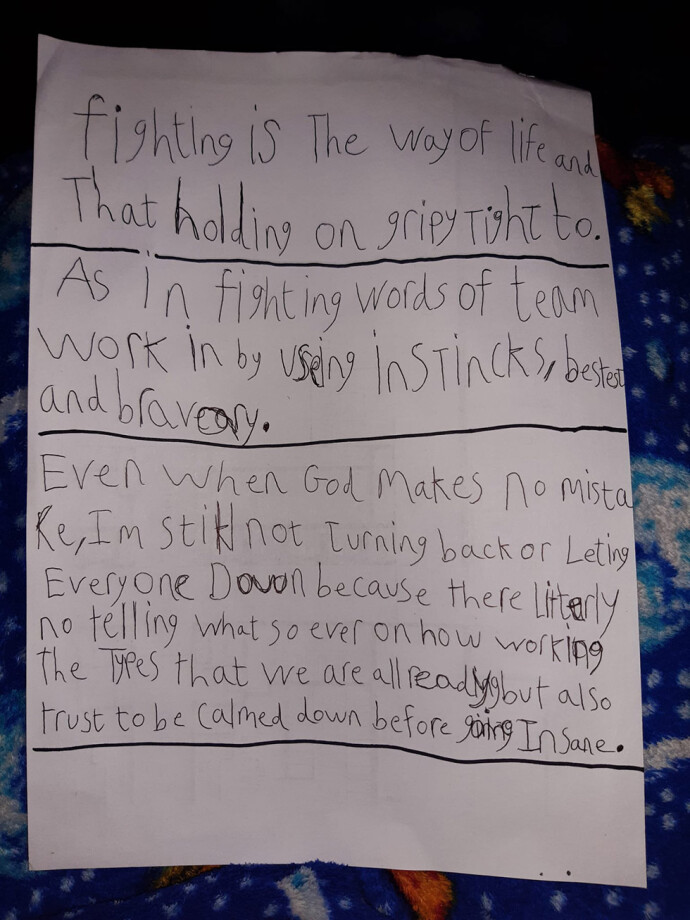 fighting is The way of life and
That holding on gripy right to.
As in fighting words of team
work in by useing instincks, bestest
and braveary.
Even when God makes no mista
ke, Im still not turning back or Leting
Everyone Down because there litterly
no telling what so ever on how working
the Types that we are all ready but also
trust to be calmed down before going Insane.